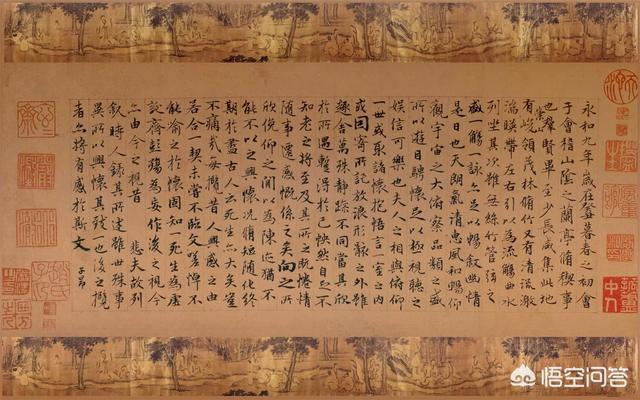 永和九年歲在癸丑暮春之初會
于會稽山陰之蘭亭脩稧事
也羣賢畢至少長咸集此地
有崇山峻領茂林脩竹又有清流激
湍暎帶左右引以為流觴曲水
列坐其次雖無絲竹管弦之
盛一觴一詠亦足以暢叙幽情
是日也天朗氣清惠風和暢仰
觀宇宙之大俯察品類之盛
所以遊目騁懷足以極視聽之
娛信可樂也夫人之相與俯仰
一世或取諸懷抱悟言一室之內
或因寄所託放浪形骸之外雖
趣舍萬殊靜躁不同當其欣
於所遇暫得於己快然自足不
知老之將至及其所之既惓情
隨事遷感慨係之矣向之所
欣俛仰之間以為陳迹猶不
能不以之興懷況脩短隨化終
期於盡古人云死生亦大矣豈
不痛哉每攬昔人興感之由
若合一契未嘗不臨文嗟悼不
能喻之於懷固知一死生為虛
誕齊彭殤為妄作後之視今
亦由今之視昔悲夫故列
叙時人錄其所述雖世殊事
異所以興懷其致一也後之攬
者亦將有感於斯文
子昂
悟空问答